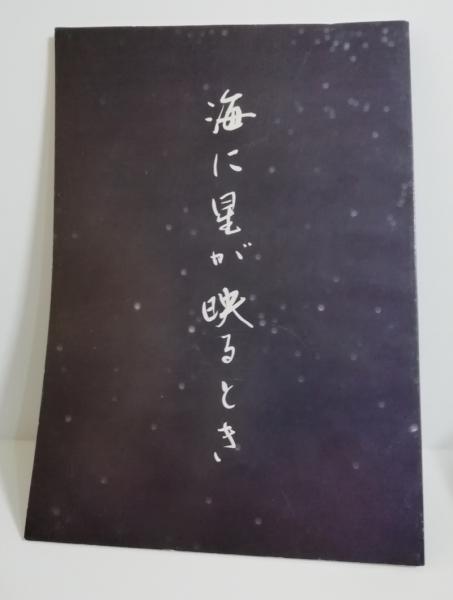 海に星が映るとき